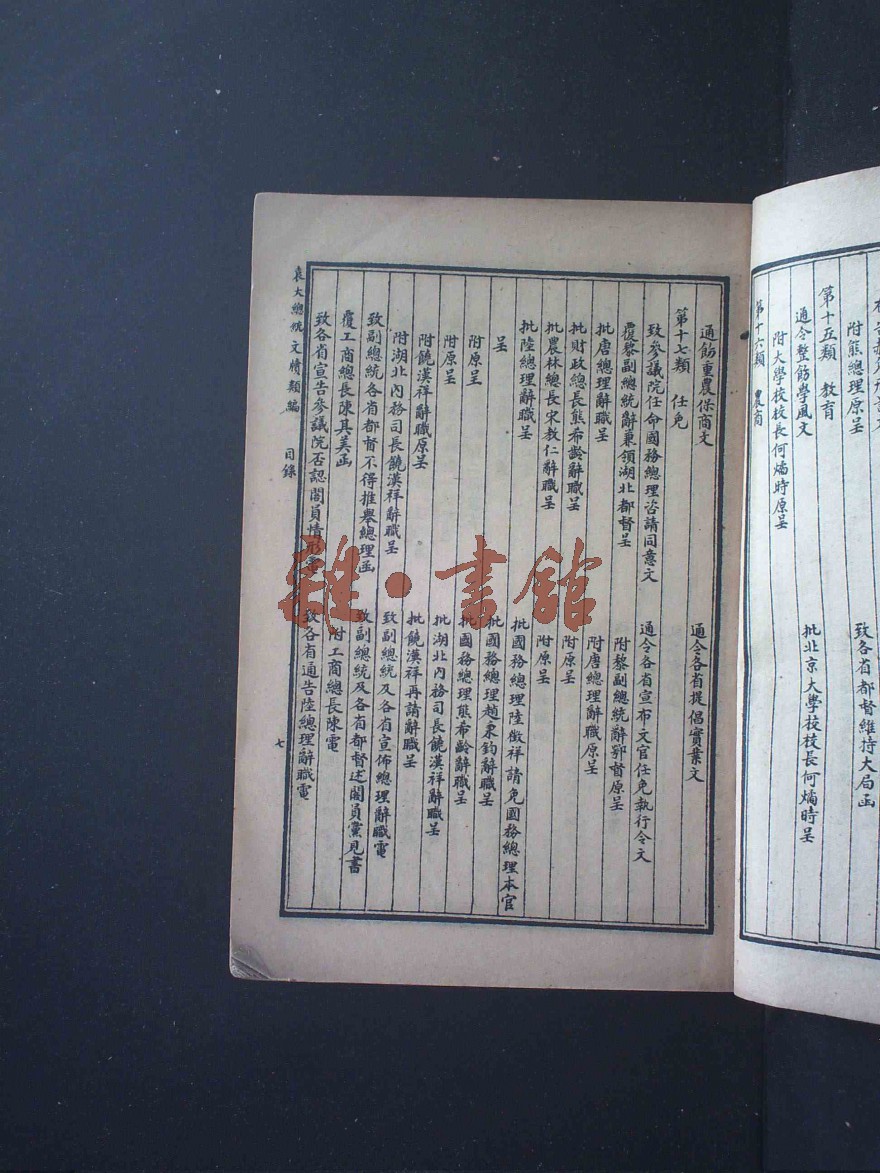 附熊總理原呈
第十五類 教育
通令整飭學風文
附大學校校長何燏時原呈
第十六類 農商
致各省都督維持大局函
批北京大學校校長何燏時呈
通飭重農保商文 通令各省提倡實業文
第十七類 任免
致參議院任命國務總理咨請同意文 通令各省宣布文官任免執行令文
覆黎副總統辭兼領湖北都督呈 附黎副總統辭鄂督原呈
批唐總理辭職呈 附唐總理辭職原呈
批財政總長熊希齡辭職呈 附原呈
批農林總長宋教仁辭職呈 附原呈
批陸總理辭職呈 批國務總理陸徵祥請免國務總理本官
呈 批國務總理趙秉鈞辭職呈
附原呈 批國務總理熊希齡辭職呈
附原呈 批湖北內務司長饒漢祥辭職呈
附饒漢祥辭職原呈 批饒漢祥再請辭職呈
附湖北內務司長饒漢祥辭職呈 致副總統及各省宣佈總理辭職電
致副總統各省都督不得推舉總理函 致副總統及各省都督述閣員黨見書
覆工商總長陳其美函 附工商總長陳電
致各省宣告參議院否認閣員情形電 致各省通告陸總理辭職電
袁大總統文牘類編 目錄
七
雜·書館